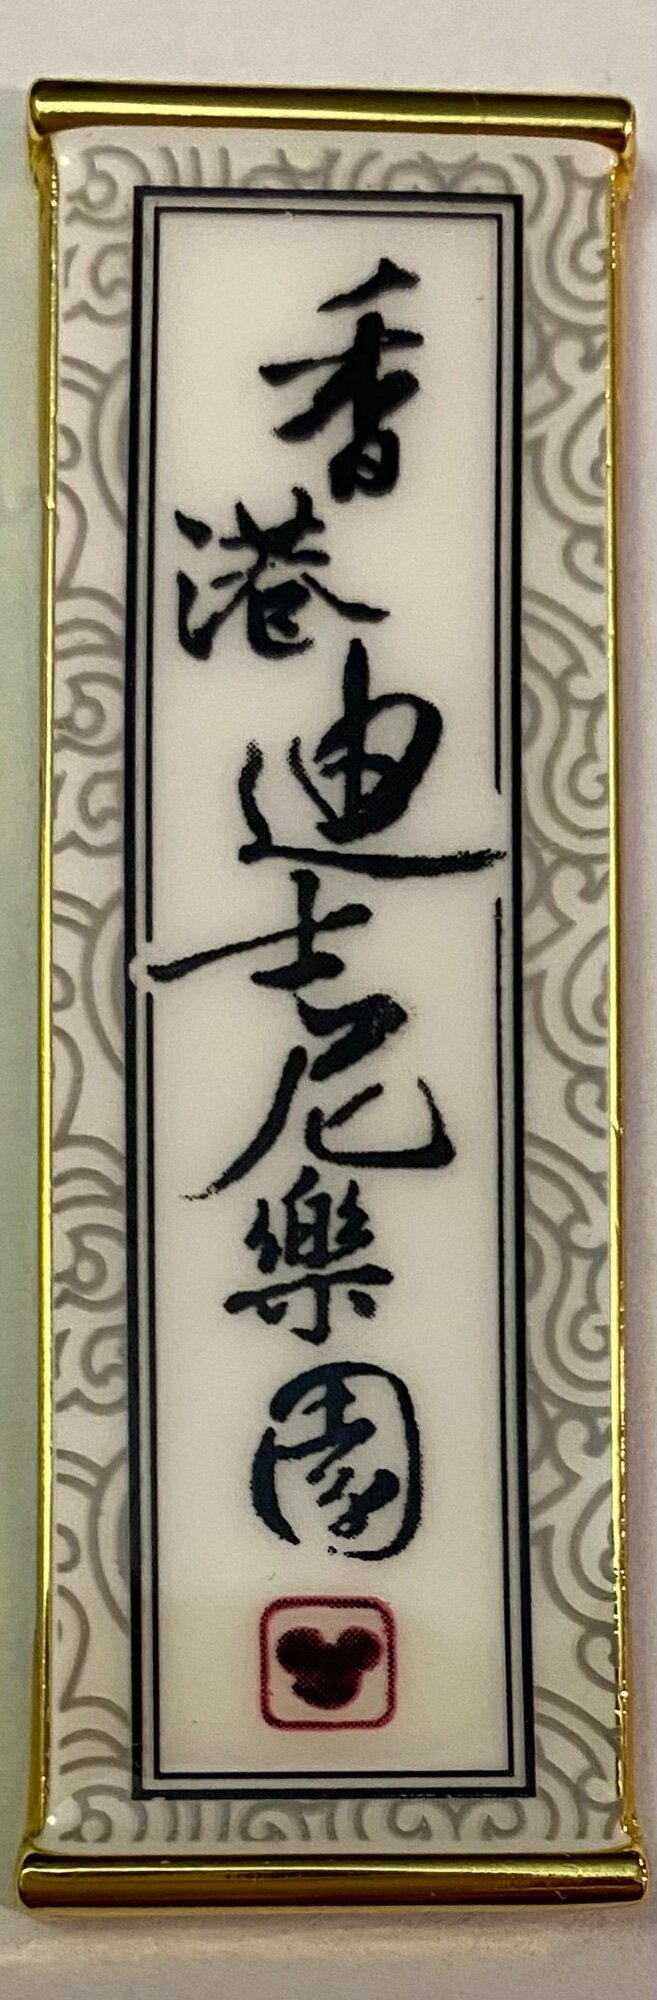 香港迪士尼樂園